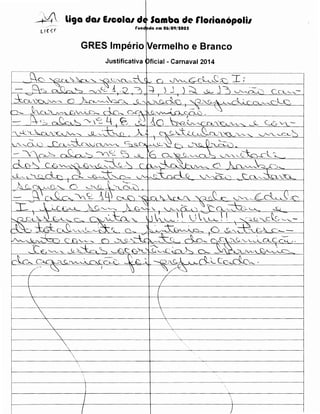 Liga das Escolas de Samba de Florianópolis
Fundada em 06/09/2002
LIESF
GRES Império Vermelho e Branco
Justificativa Oficial - Carnaval 2014
Ao passar perante o módulo I:
- As alas nº 1, 2, 3, 7, 11, 12 e 13 não can-
taram o samba enredo, prejudicando
a harmonia da agremiação.
- As alas nº 4, 8 e 10 brincavam e con-
versavam entre si, gesticulavam mas
não cantavam sequer o refrão.
- Nas alas nº 5 e 6 apenas metade
dos componentes cantavam o samba
enredo, a outra metade não cantava
sequer o refrão.
- A ala nº 14 ao passar pelo módulo
I, ficou sem som, não cantou e
passou a gritar Uhu!! Uhu!!, perden-
do totalmente a sintonia, o entrosa-
mento com o restante da agremiação.
Com estas ocorrências a harmonia
da agremiação foi prejudicada.